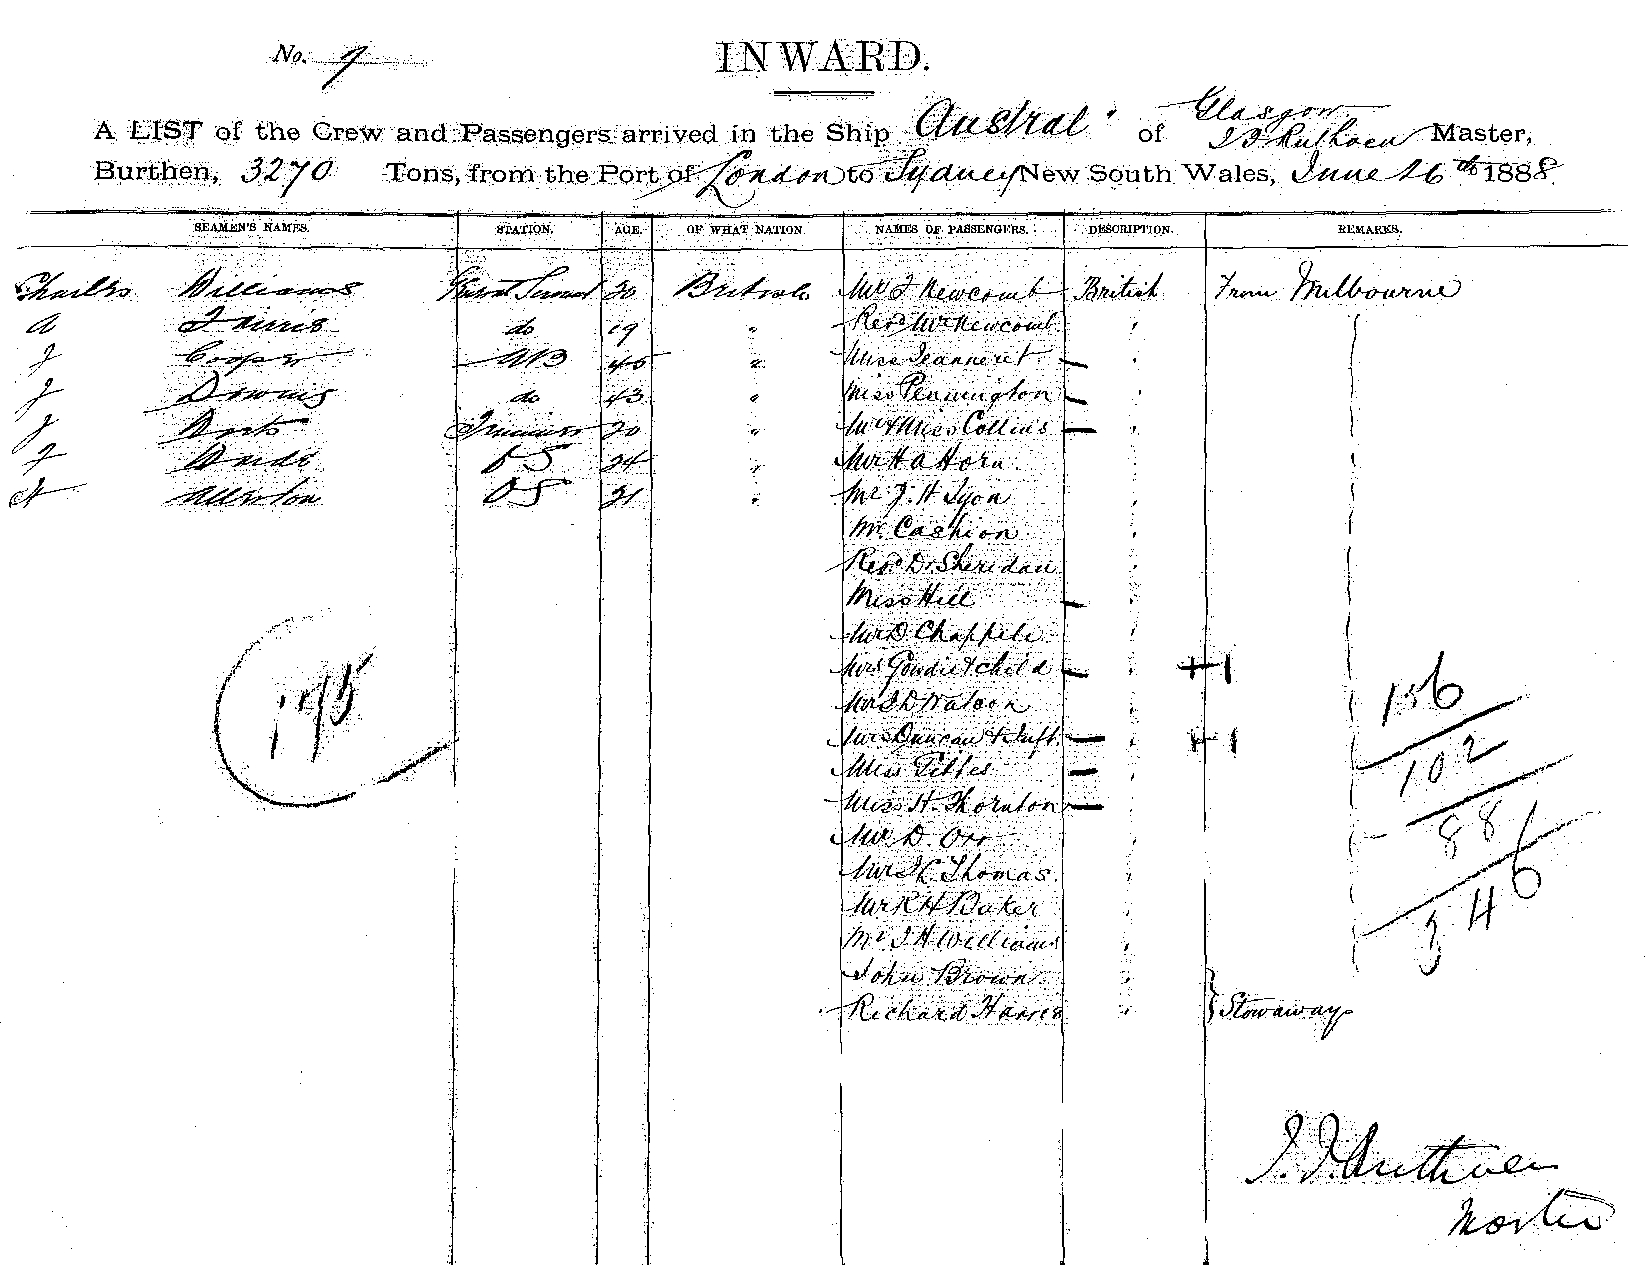 No. 7
INWARD.
A LIST of the Crew and Passengers arrived in the Ship Austral of Glasgow
Master,
Burthen, 3270 Tons, from the Port of London to Sydney New South Wales, June 26th 1888
SEAMEN'S NAMES. STATION. AGE. OF WHAT NATION. NAMES OF PASSENGERS. DESCRIPTION. REMARKS.
Charles Williams 20 British Mr J Newcomb British From Melbourne
A do 19 " Revd Mr Newcomb "
J Cooper AB 45 " Miss Jeanneret "
J Downis do 43 " Miss Pennington "
J 20 " Mr & Miss Collins "
J OS 24 " Mr H A Horn
OS 21 " Mr J. H Lyon "
Mr Cashion "
Revd Dr Sheridan "
Miss Hill "
Mr D Chappele "
Mrs Goudie & child " +1
Mr J D Watson "
Mrs Duncan & Inft " +1
Miss "
Miss H. Thornton "
Mr D. Orr "
Thomas "
Mr R H Baker "
Mr J H Williams "
John Brown "
Richard " Stowaways
195
156
102
88
346
Ruthven
Master